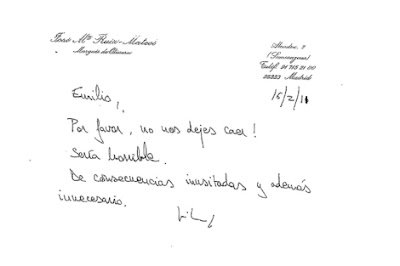 José Mª Ruiz-Mateos
Marqués de Olivara
(Somosaguas)
28223 Madrid
16/2/11
Emilio,
Por favor, no nos dejes caer!
Sería horrible.
De consecuencias inusitadas y además
innecesario.